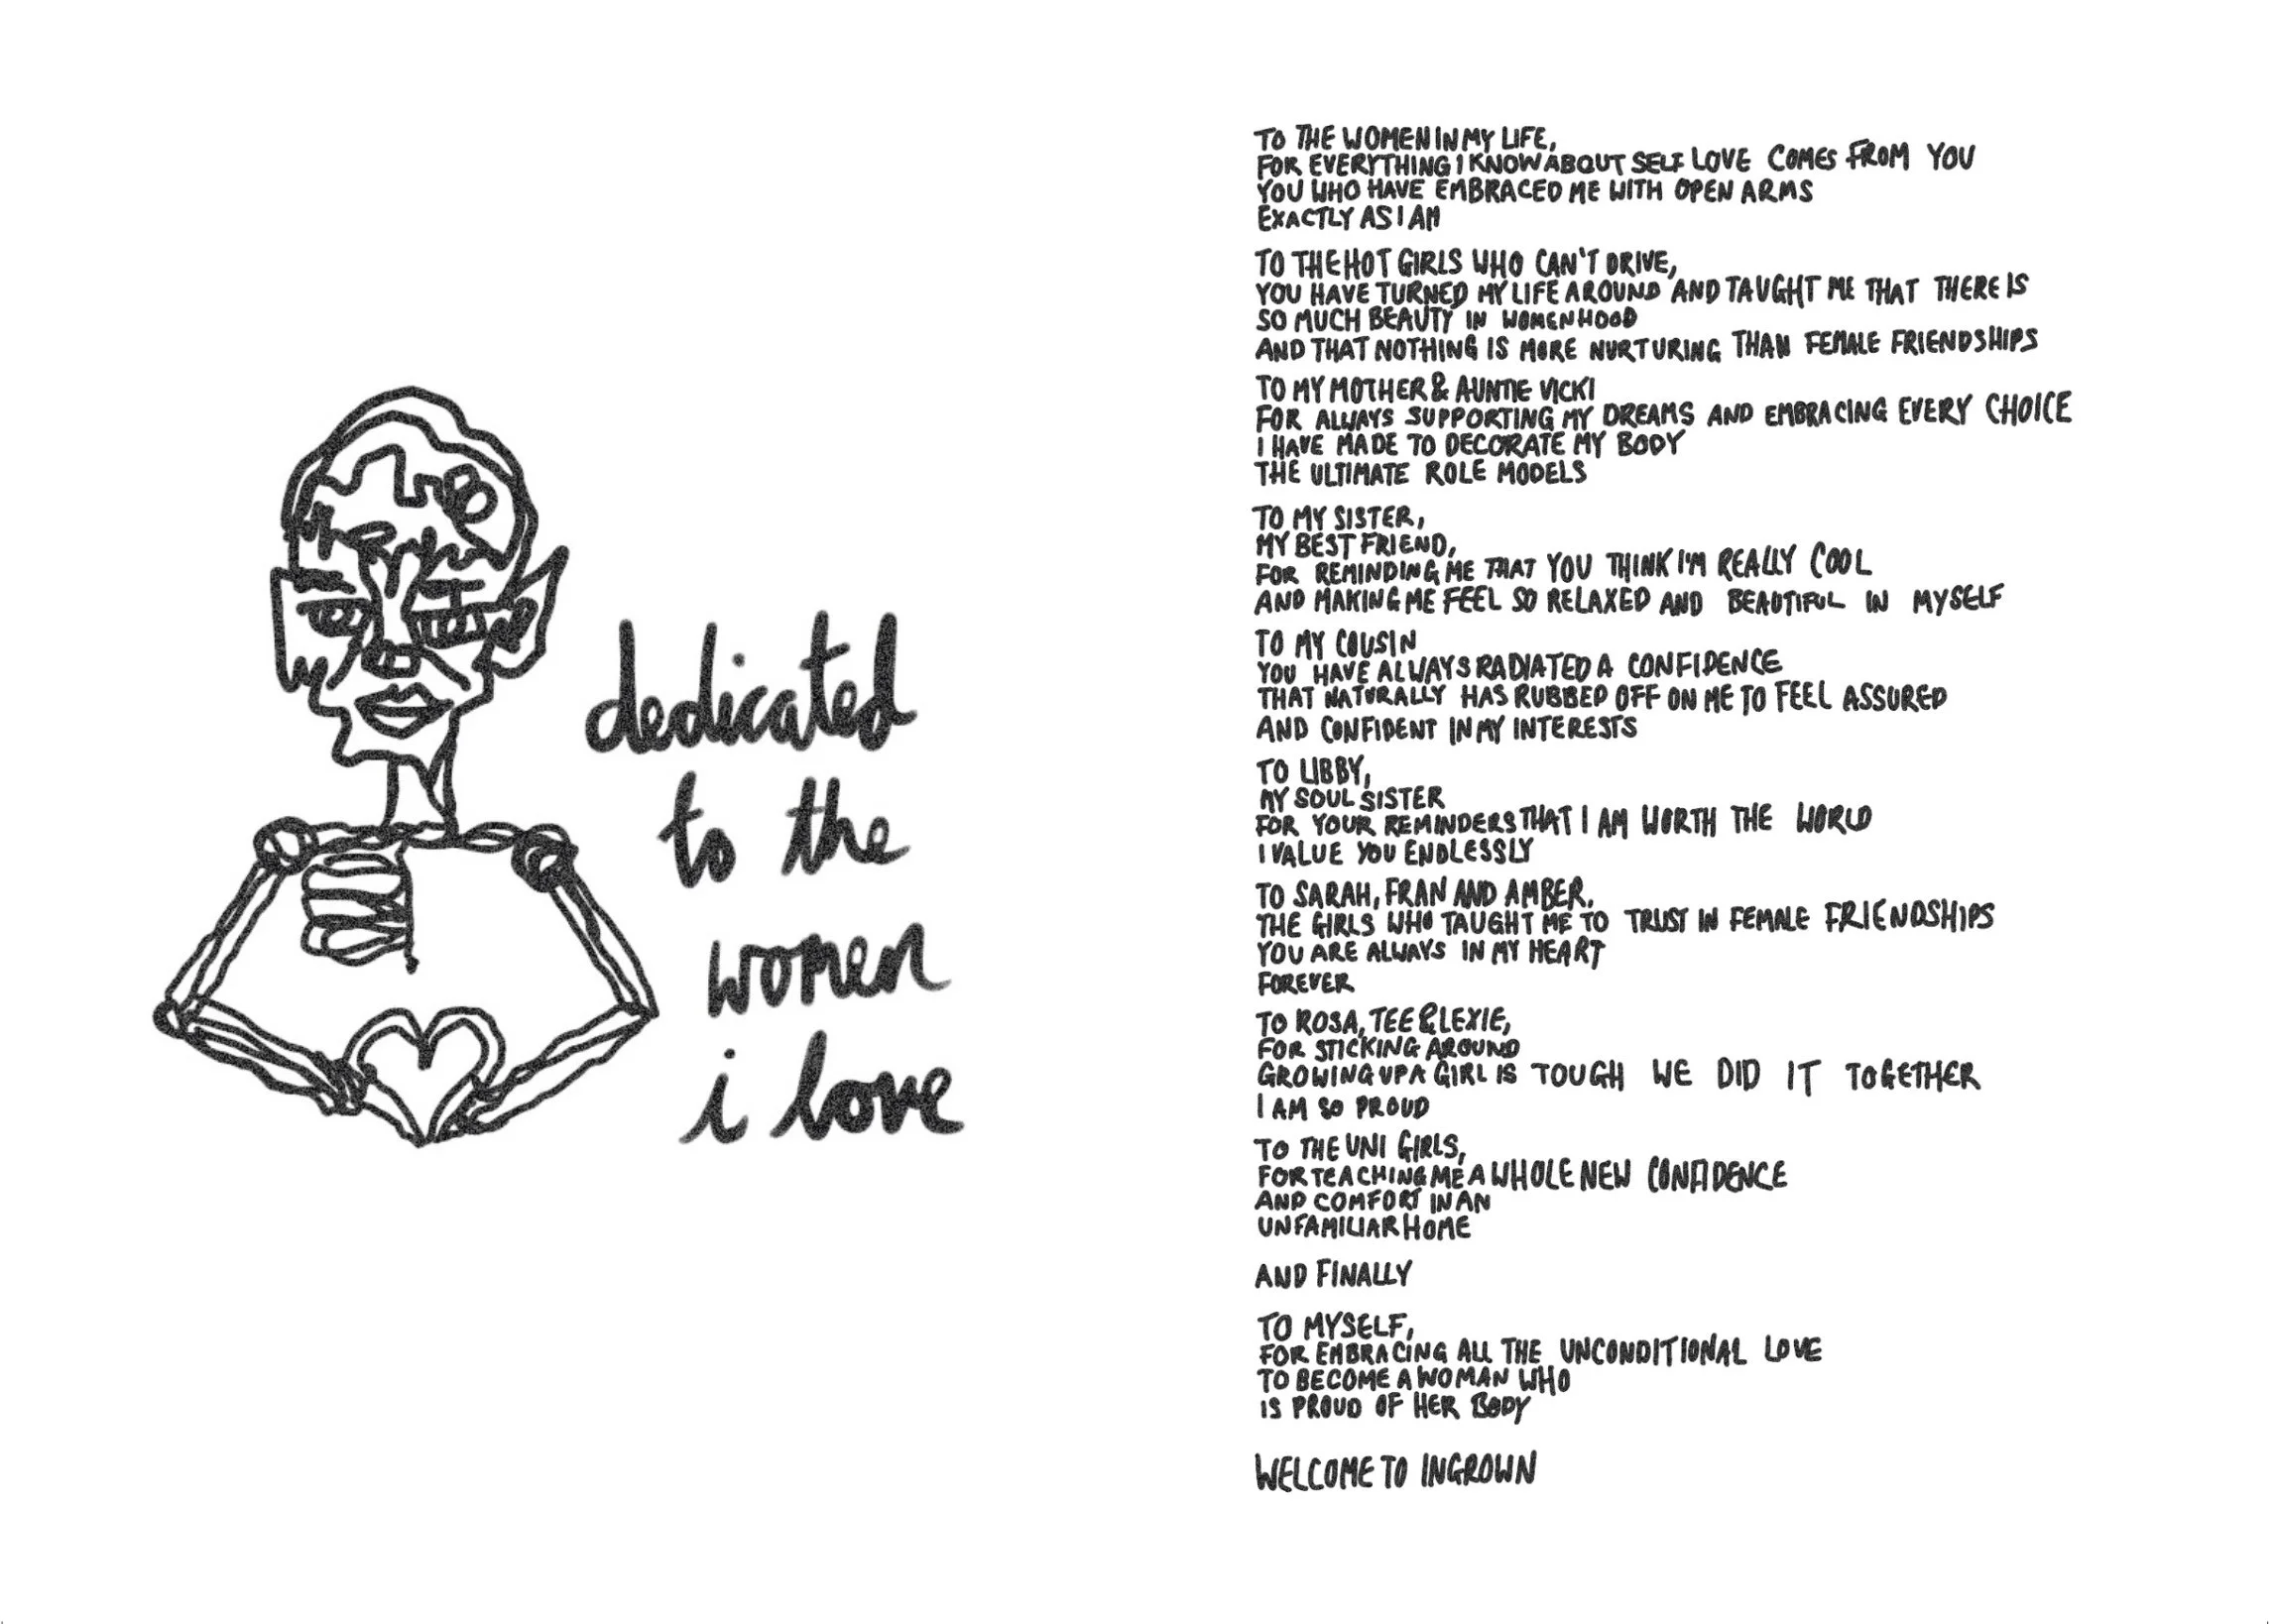 dedicated
to the
women
i love
TO THE WOMEN IN MY LIFE,
FOR EVERYTHING I KNOW ABOUT SELF LOVE COMES FROM YOU
YOU WHO HAVE EMBRACED ME WITH OPEN ARMS
EXACTLY AS I AM
TO THE HOT GIRLS WHO CAN'T DRIVE,
YOU HAVE TURNED MY LIFE AROUND AND TAUGHT ME THAT THERE IS
SO MUCH BEAUTY IN WOMENHOOD
AND THAT NOTHING IS MORE NURTURING THAN FEMALE FRIENDSHIPS
TO MY MOTHER & AUNTIE VICKI
FOR ALWAYS SUPPORTING MY DREAMS AND EMBRACING EVERY CHOICE
I HAVE MADE TO DECORATE MY BODY
THE ULTIMATE ROLE MODELS
TO MY SISTER,
MY BEST FRIEND,
FOR REMINDING ME THAT YOU THINK I'M REALLY COOL
AND MAKING ME FEEL SO RELAXED AND BEAUTIFUL IN MYSELF
TO MY COUSIN
YOU HAVE ALWAYS RADIATED A CONFIDENCE
THAT NATURALLY HAS RUBBED OFF ON ME TO FEEL ASSURED
AND CONFIDENT IN MY INTERESTS
TO LIBBY,
MY SOUL SISTER
FOR YOUR REMINDERS THAT I AM WORTH THE WORLD
I VALUE YOU ENDLESSLY
TO SARAH, FRAN AND AMBER.
THE GIRLS WHO TAUGHT ME TO TRUST IN FEMALE FRIENDSHIPS
YOU ARE ALWAYS IN MY HEART
FOREVER
TO ROSA, TEE & LEXIE,
FOR STICKING AROUND
GROWING UP A GIRL IS TOUGH WE DID IT TOGETHER
I AM SO PROUD
TO THE UNI GIRLS,
FOR TEACHING ME A WHOLE NEW CONFIDENCE
AND COMFORT IN AN
UNFAMILIAR HOME
AND FINALLY
TO MYSELF,
FOR EMBRACING ALL THE UNCONDITIONAL LOVE
TO BECOME A WOMAN WHO
IS PROUD OF HER BODY
WELCOME TO INGROWN